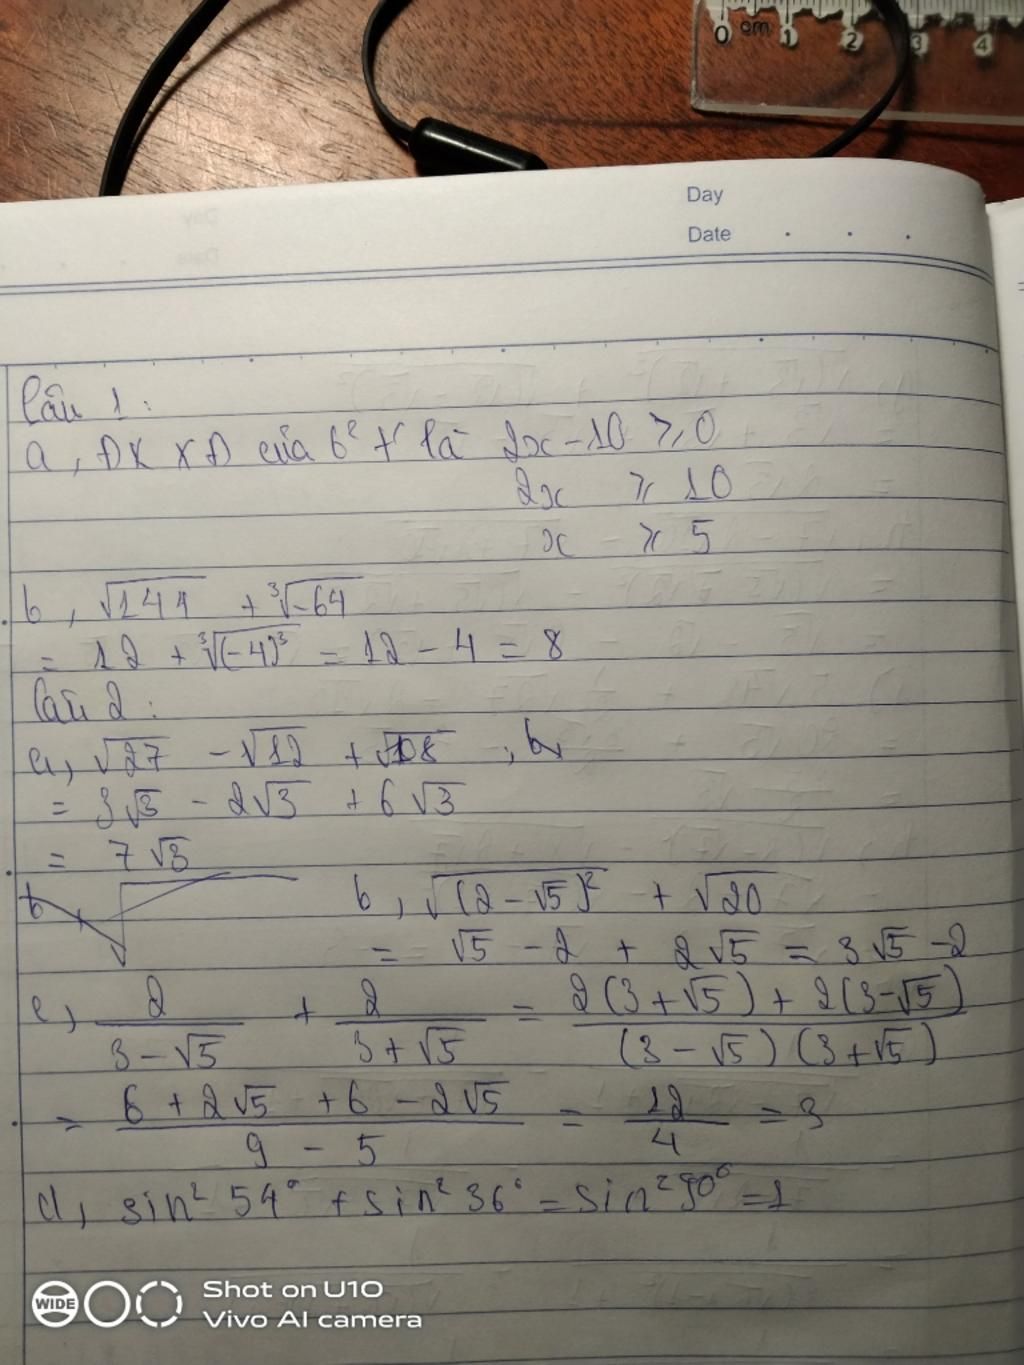 0 cm 1 2 3 4
Day
Date
Câu 1:
a, ĐKXĐ của bt là 2x - 10 ≥ 0
2x ≥ 10
x ≥ 5
b, √144 + ³√-64
= 12 + ³√(-4)³ = 12 - 4 = 8
Câu 2:
a, √27 - √12 + √108 , b,
= 3√3 - 2√3 + 6√3
= 7√3
b, √(2 - √5)² + √20
= √5 - 2 + 2√5 = 3√5 - 2
c, 2/(3 - √5) + 2/(3 + √5) = (2(3 + √5) + 2(3 - √5))/((3 - √5)(3 + √5))
= (6 + 2√5 + 6 - 2√5)/(9 - 5) = 12/4 = 3
d, sin² 54° + sin² 36° = sin² 90° = 1
WIDE
Shot on U10
Vivo AI camera